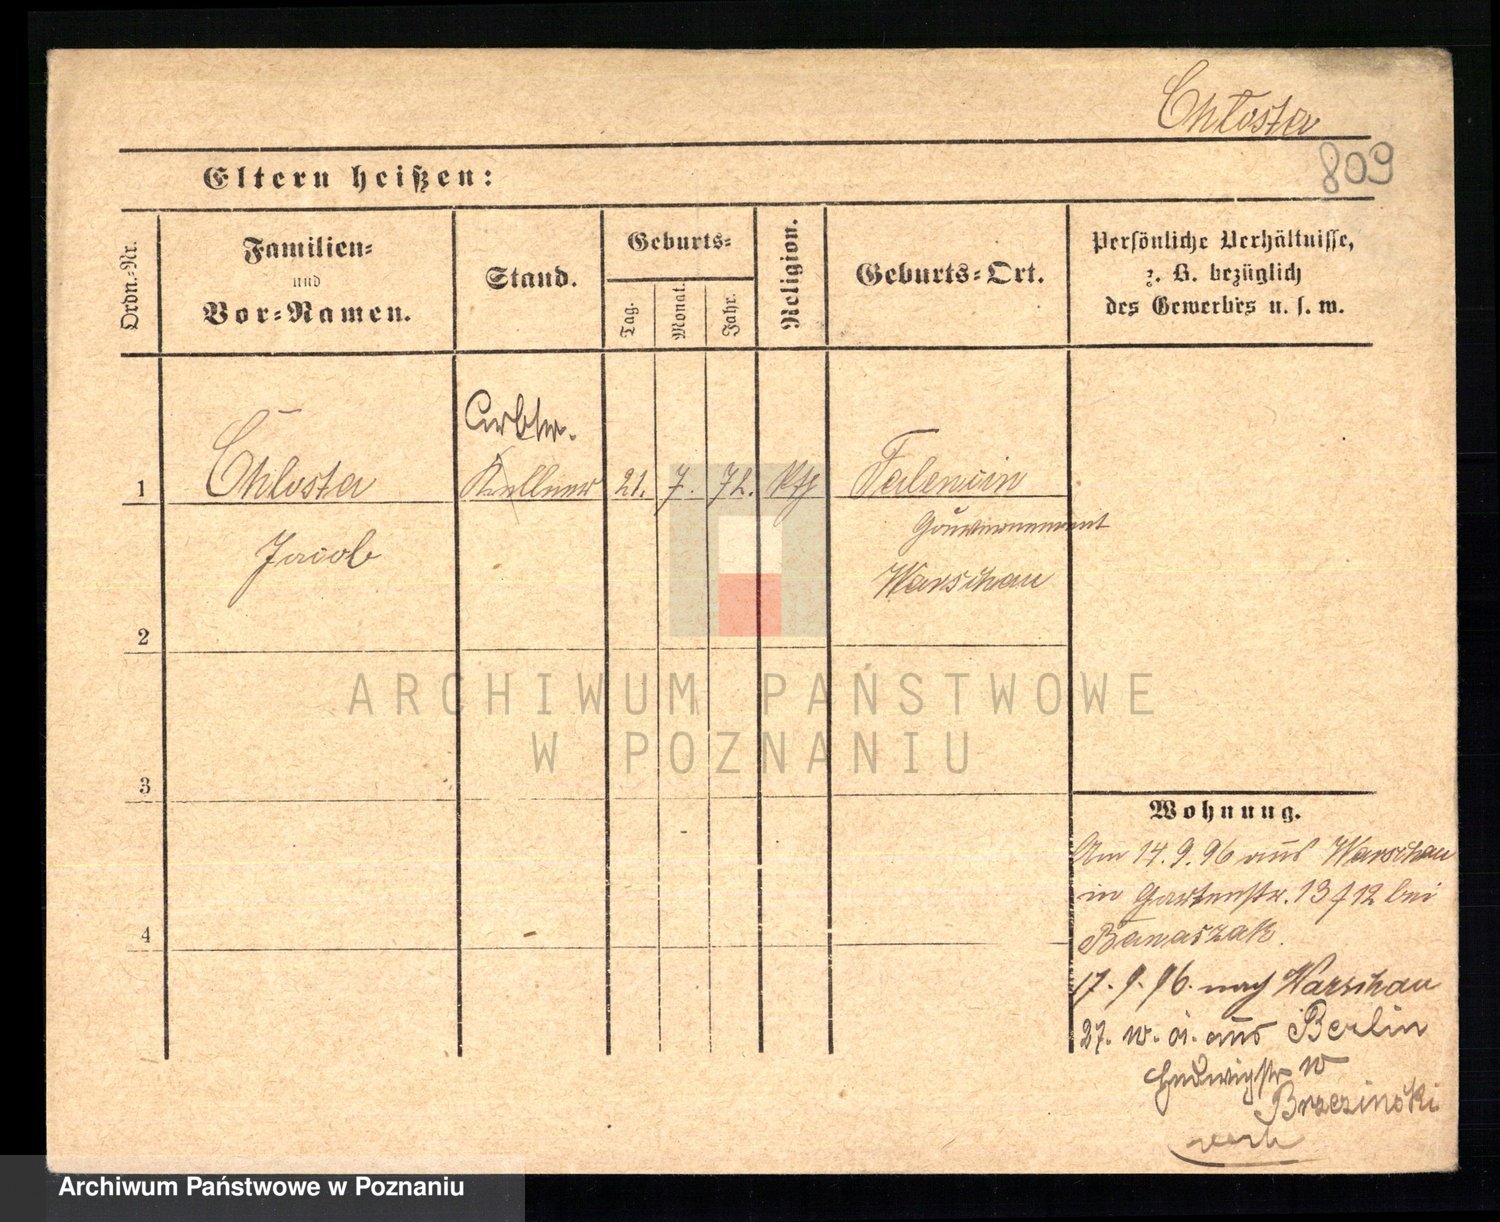 Chłosta
809
Eltern heißen:
Ordn.-Nr.
Familien-
und
Vor-Namen.
Stand.
Geburts-
Tag.
Monat.
Jahr.
Religion.
Geburts-Ort.
Persönliche Verhältnisse,
z. B. bezüglich
des Gewerbes u. s. w.
Arbtr.
1 Chlosta Kellner 21. 7. 72. kth
Gouvernement
Jacob Warschau
2
ARCHIWUM PAŃSTWOWE
W POZNANIU
3
Wohnung.
Am 14.9.96 aus Warschau
in Gartenstr. 13 12 bei
Banaszak.
17.9.96. nach Warschau
4
27. aus Berlin
Brzezinski
Archiwum Państwowe w Poznaniu